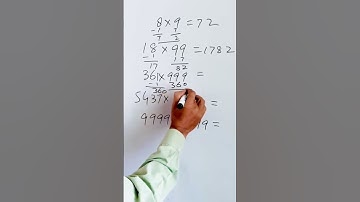 8 × 9 = 72
-1 7
7 2
18 × 99 = 1782
-1 17
17 82
361 × 999 =
-1 360
360
5437 × =
9999 19 =